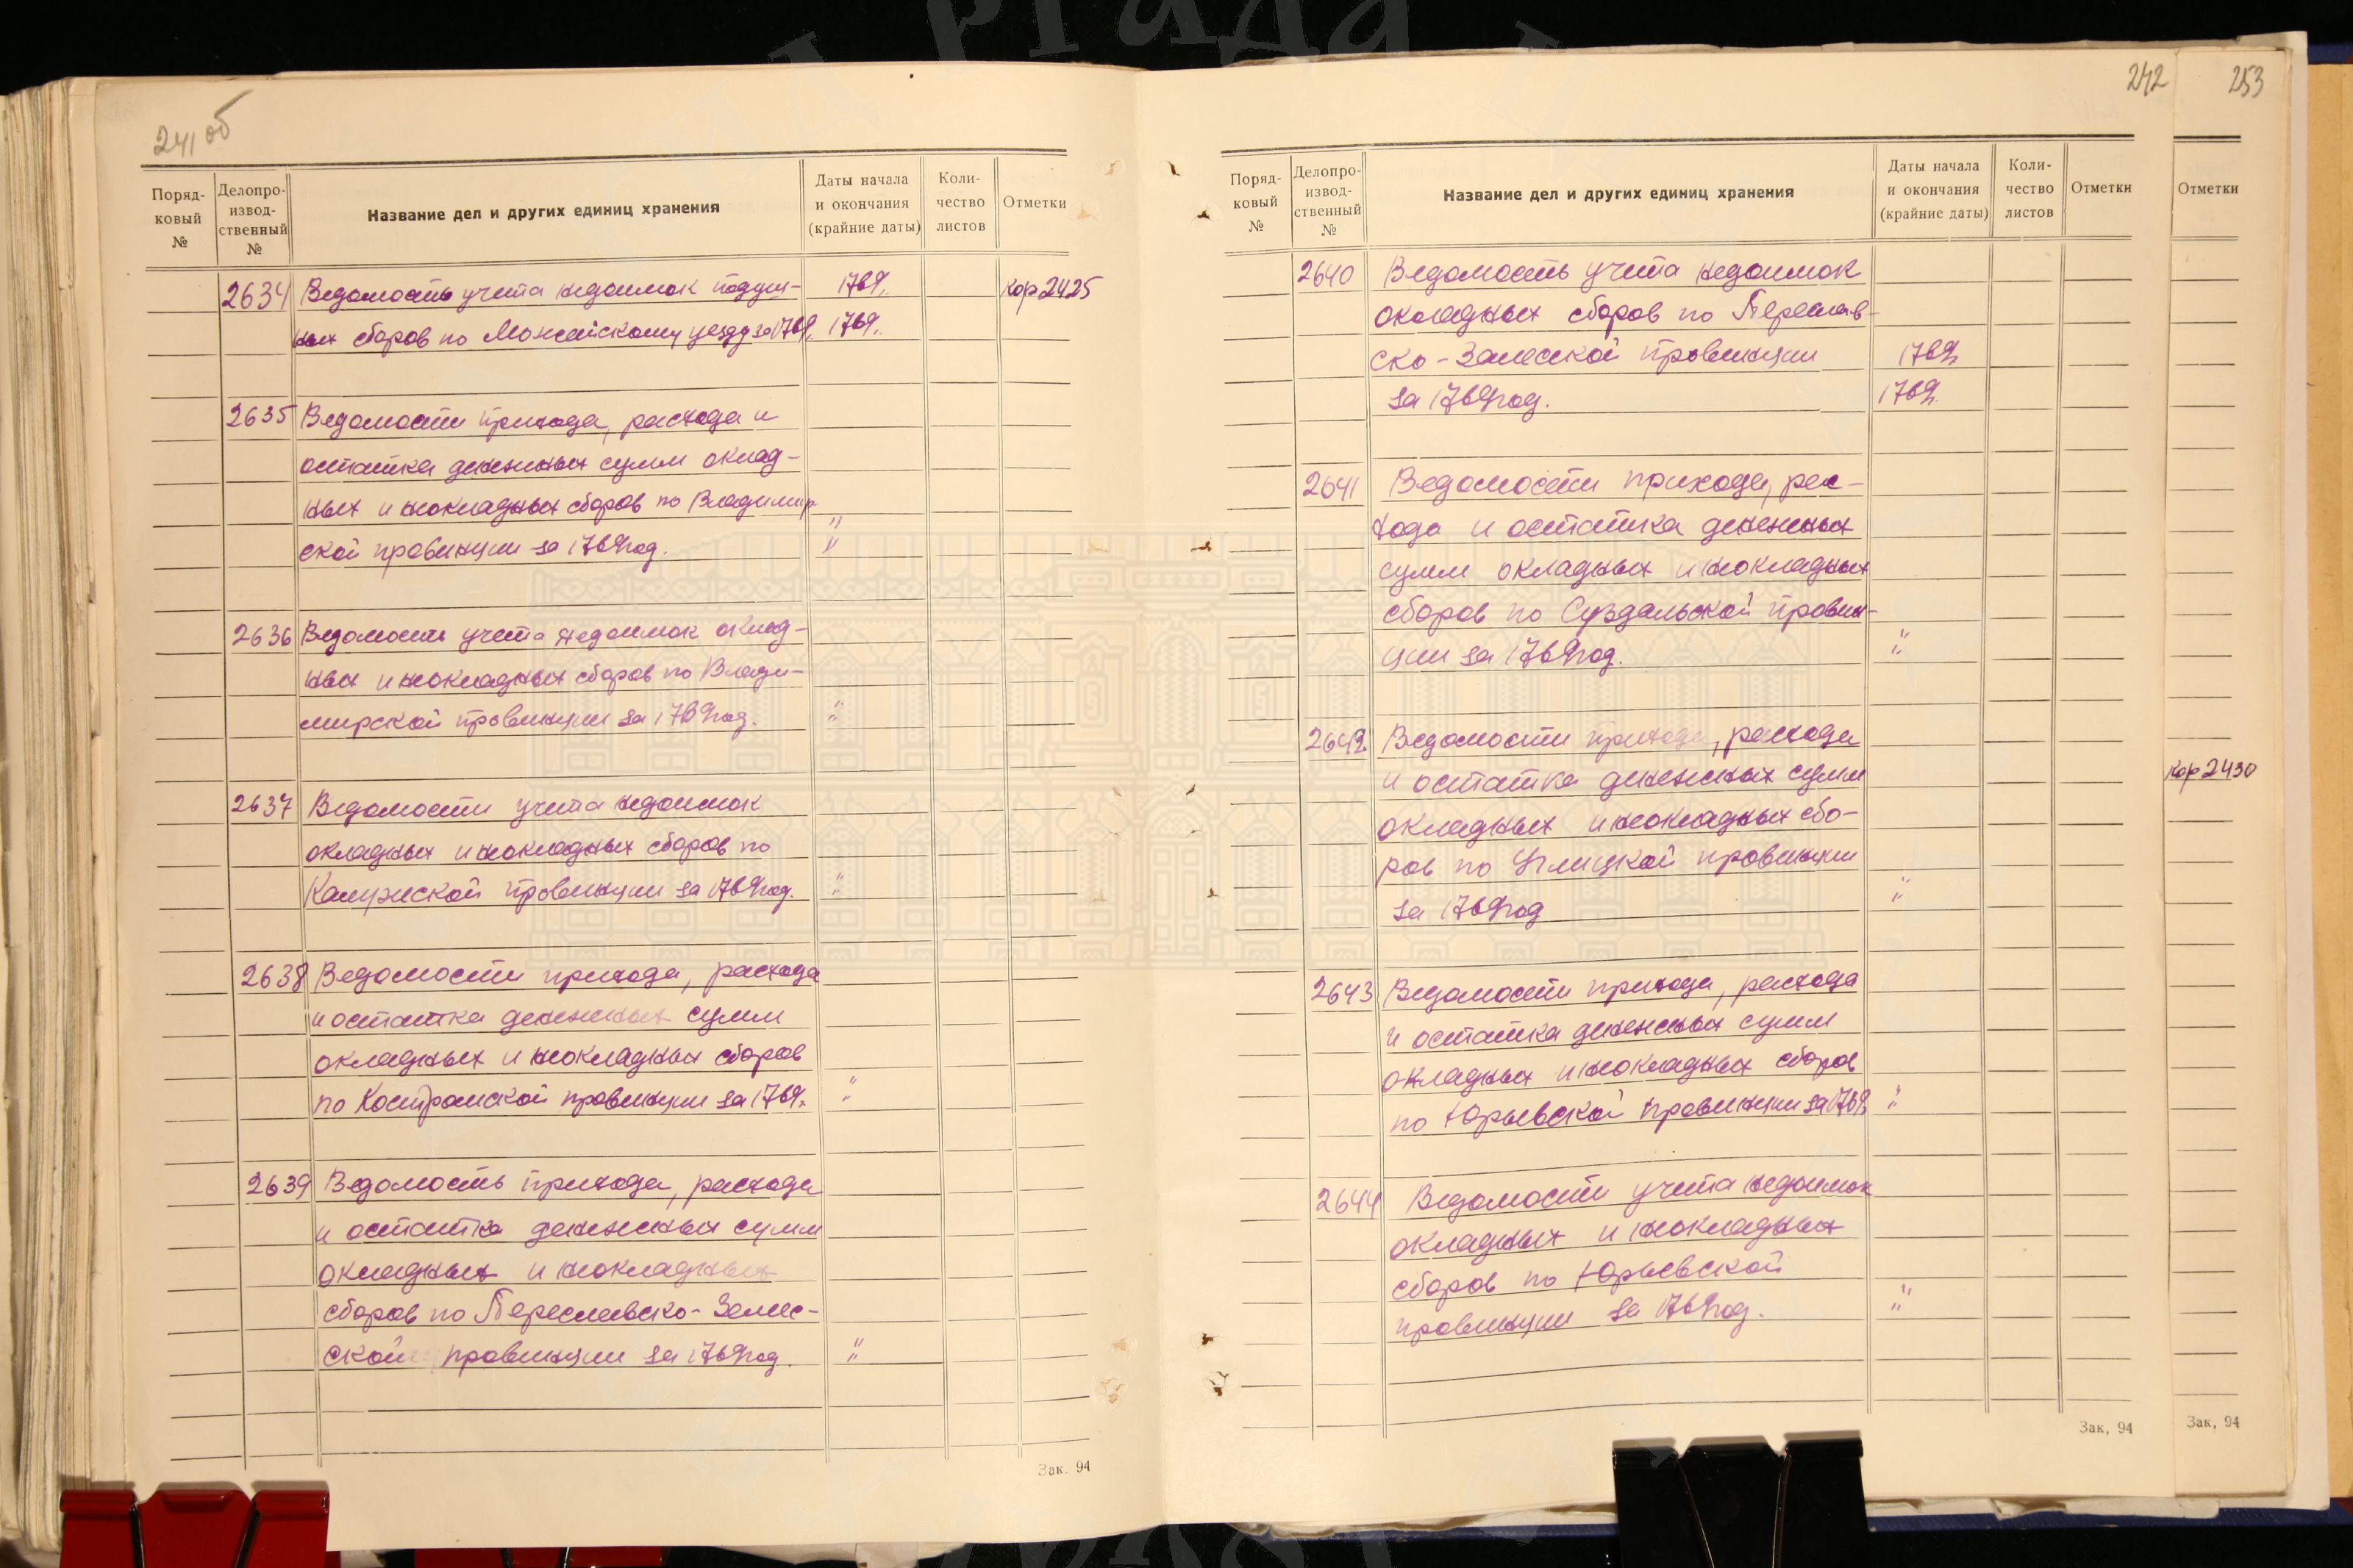 241 об
Поряд-
ковый
№
Делопро-
извод-
ственный
№
Название дел и других единиц хранения
Даты начала
и окончания
(крайние даты)
Коли-
чество
листов
Отметки
2634 Ведомость учета недоимок подуш- 1769г. кор 2425
ных сборов по Можайскому уезду за 1769г. 1769г.
2635 Ведомости прихода, расхода и
остатка денежных сумм оклад-
ных и неокладных сборов по Владимир
ской провинции за 1769 год. "
"
2636 Ведомость учета недоимок оклад-
ных и неокладных сборов по Влади-
мирской провинции за 1769 год. "
"
2637 Ведомости учета недоимок
окладных и неокладных сборов по
Калужской провинции за 1769 год. "
"
2638 Ведомости прихода, расхода
и остатка денежных сумм
окладных и неокладных сборов
по Костромской провинции за 1769г. "
"
2639 Ведомость прихода, расхода
и остатка денежных сумм
окладных и неокладных
сборов по Переславско-Залес-
ской провинции за 1769 год. "
"
Зак. 94
242
Поряд-
ковый
№
Делопро-
извод-
ственный
№
Название дел и других единиц хранения
Даты начала
и окончания
(крайние даты)
Коли-
чество
листов
Отметки
2640 Ведомость учета недоимок
окладных сборов по Переслав-
ско-Залесской провинции 1769г.
за 1769 год. 1769г.
2641 Ведомости прихода, рас-
хода и остатка денежных
сумм окладных и неокладных
сборов по Суздальской провин-
ции за 1769 год. "
"
2642 Ведомости прихода, расхода
и остатка денежных сумм
окладных и неокладных сбо-
ров по Углицкой провинции
за 1769 год "
"
2643 Ведомости прихода, расхода
и остатка денежных сумм
окладных и неокладных сборов
по Юрьевской провинции за 1769г. "
"
2644 Ведомости учета недоимок
окладных и неокладных
сборов по Юрьевской
провинции за 1769 год. "
"
Зак. 94
253
Отметки
кор 2430
Зак. 94